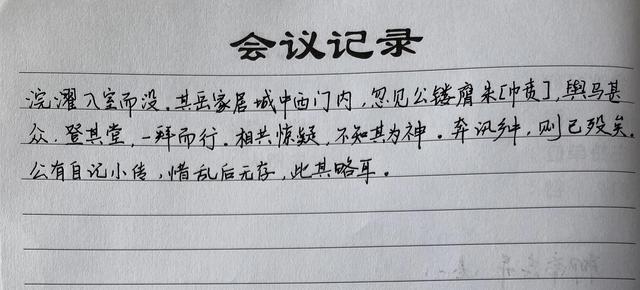 会议记录
浣濯入室而没.其岳家居城中西门内,忽见公镂膺朱[巾贲],舆马甚
众.登其堂,一拜而行.相共惊疑,不知其为神.奔讯乡中,则已殁矣.
公有自记小传,惜乱后无存,此其略耳.